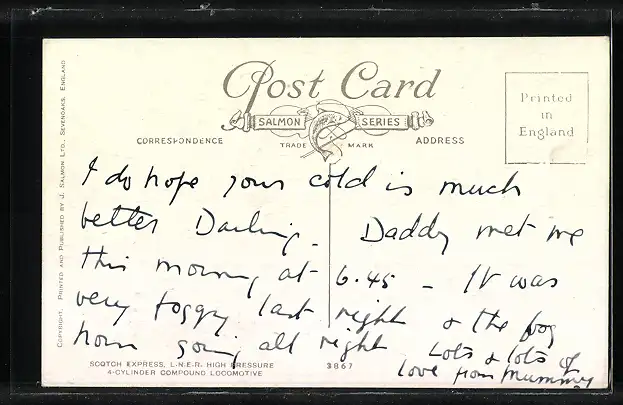 Post Card
SALMON SERIES
TRADE MARK
CORRESPONDENCE
ADDRESS
Printed
in
England
COPYRIGHT, PRINTED AND PUBLISHED BY J. SALMON LTD., SEVENOAKS, ENGLAND
I do hope your cold is much
better Darling. Daddy met me
this morning at 6.45 – It was
very foggy last night & the fog
horn going all night
Lots & lots of
love from Mummy
SCOTCH EXPRESS, L·N·E·R. HIGH PRESSURE
4-CYLINDER COMPOUND LOCOMOTIVE
3867